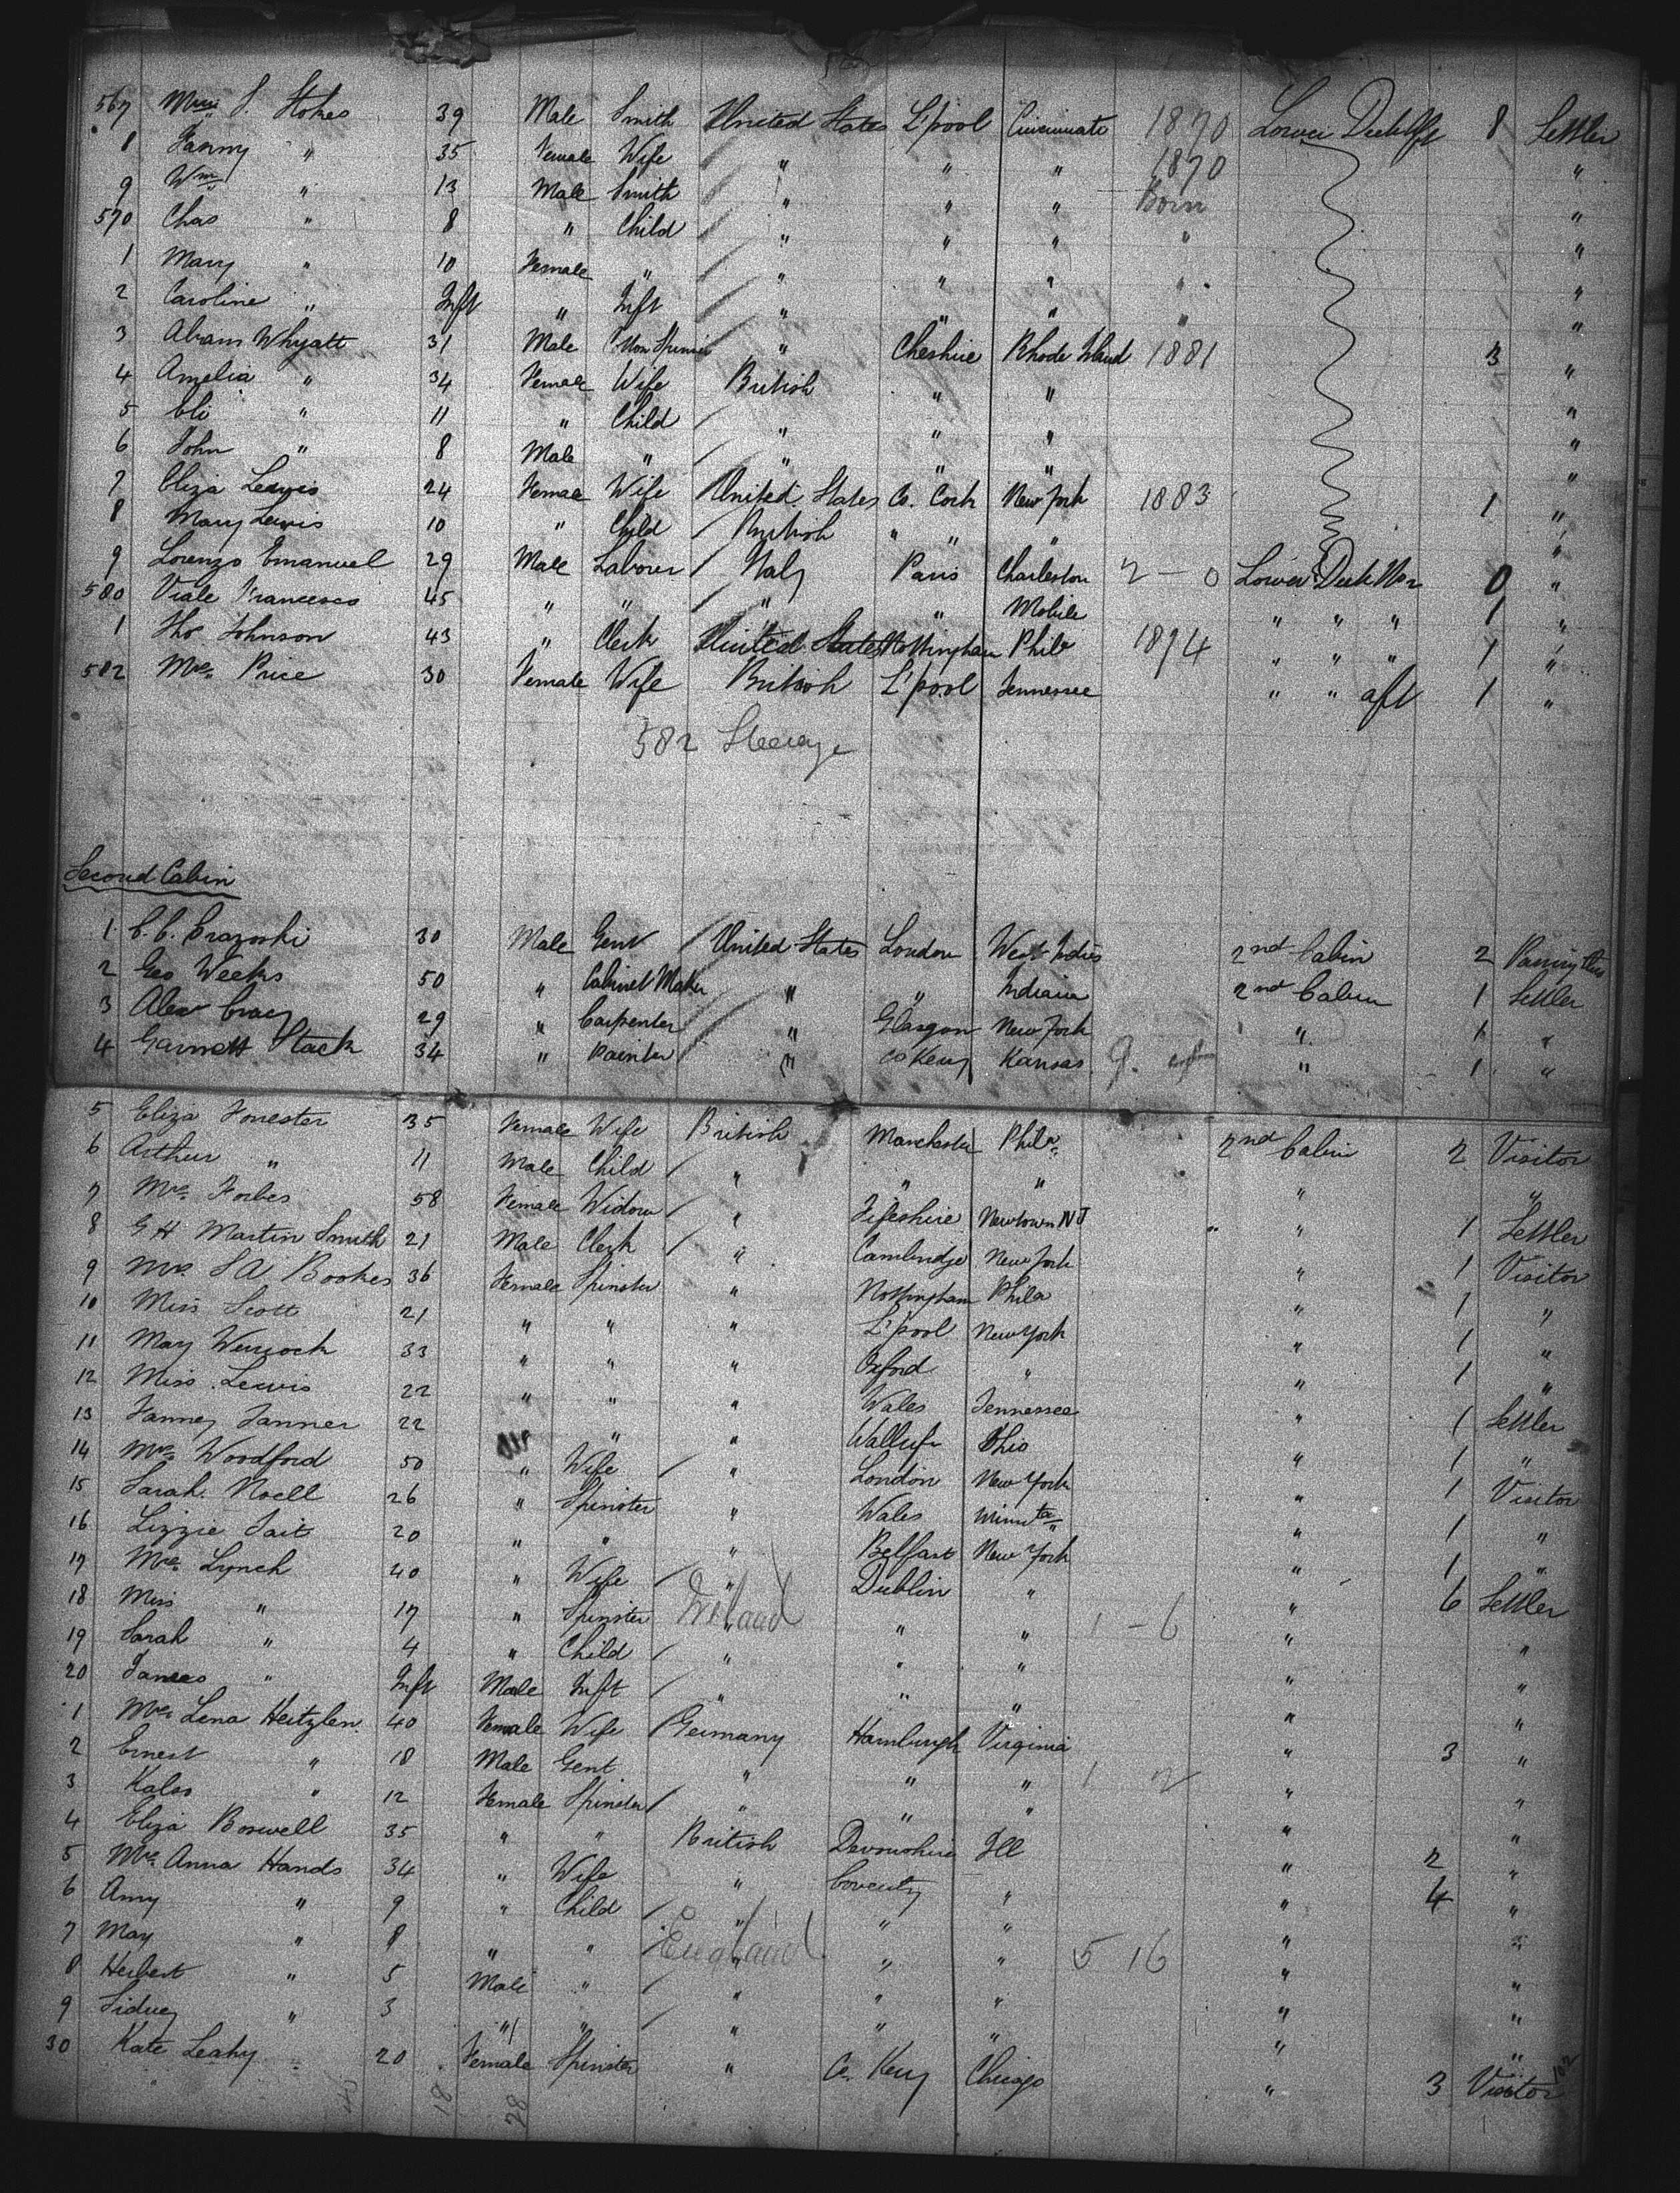 567 S. Stokes 39 Male Smith United States L'pool Cincinnate 1870 Lower Deck Aft 8 Settler
8 Fanny " 35 Female Wife " " " 1870 "
9 Wm " 13 Male Smith " " " Born "
570 Chas " 8 " Child " " " " "
1 Mary " 10 Female " " " " " "
2 Caroline " Inft " Inft " " " " "
3 Abram Whyatt 31 Male " Cheshire Rhode Island 1881 3 "
4 Amelia " 34 Female Wife British " " "
5 Eli " 11 " Child " " " "
6 John " 8 Male " " " " "
7 Eliza Lewis 24 Female Wife United States Co. Cork New York 1883 1 "
8 Mary Lewis 10 " Child British " " " "
9 Lorenzo Emanuel 29 Male Labourer Italy Paris Charleston 2 - 0 Lower Deck 0 "
580 Viale Francesco 45 " " " " Mobile " " " 1 "
1 Thos Johnson 43 " Clerk United States Nottingham Phila 1874 " " " 1 "
582 Mrs. Price 30 Female Wife British L'pool Tennessee " " aft 1 "
582 Steerage
Second Cabin
1 30 Male Gent United States London West Indies 2nd Cabin 2 Passing thro
2 Geo Weeks 50 " Cabinet Maker " " Indiana 2nd Cabin 1 Settler
3 Alex 29 " Carpenter " Glasgow New York " 1 "
4 Garnett Stack 34 " Painter " Co Kerry Kansas " 1 "
5 Eliza Forrester 35 Female Wife British Manchester Phila. 2nd Cabin 2 Visitor
6 Arthur " 11 Male Child " " " " "
7 Mrs. Forbes 58 Female Widow " Fifeshire Newtown NJ " 1 Settler
8 G H Martin Smith 21 Male Clerk " Cambridge New York " 1 Visitor
9 Mrs. S A Bookes 36 Female Spinster " Nottingham Phila " 1 "
10 Miss Scott 21 " " " L'pool New York " 1 "
11 Mary 33 " " " Oxford " " 1 "
12 Miss Lewis 22 " " " Wales Tennessee " 1 Settler
13 Fanney Tanner 22 " " Ohio " 1 "
14 Mrs. Woodford 50 " Wife " London New York " 1 Visitor
15 Sarah Noell 26 " Spinster " Wales " 1 "
16 Lizzie Tait 20 " " " Belfast New York " 1 "
17 Mrs. Lynch 40 " Wife " Dublin " " 6 Settler
18 Miss " 17 " Spinster " Ireland " " 1 - 6 " "
19 Sarah " 4 " Child " " " " "
20 James " Inft Male Inft " " " " "
1 Mrs. Lena Heitzlen 40 Female Wife Germany Hamburgh Virginia " 3 "
2 Ernest " 18 Male Gent " " " 1 2 " "
3 " 12 Female Spinster " " " " "
4 Eliza Boswell 35 " " British Devonshire Ill " 2 "
5 Mrs. Anna Hands 34 " Wife " Coventry " " 4 "
6 Amy " 9 " Child " " " " "
7 May " 8 " " England " " " 5 16 " "
8 Herbert " 5 Male " " " " " "
9 Sidney " 3 " " " " " " "
30 Kate Leahy 20 Female Spinster " Co. Kerry Chicago " 3 Visitor
18 28